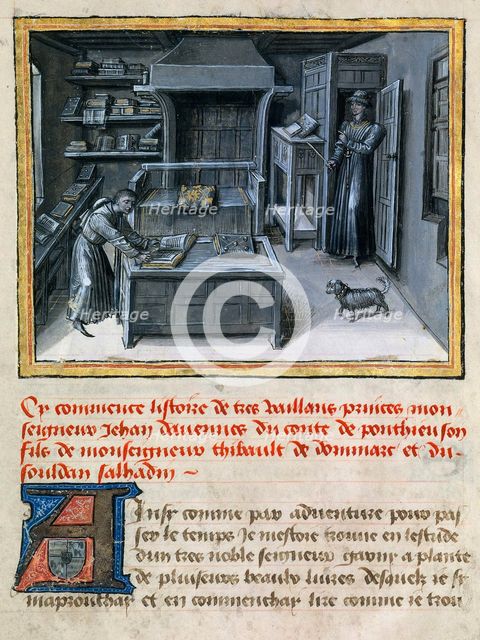 Heritage
Heritage
Heritage
Heritage
Images
Images
Images
Images
C
Cy commence listoire de tres vaillans princes mon
seigneur Jehan davennes du conte de ponthieu son
fils de monseigneur thibault de dommare et du
souldan salhadin ~
Ainsy comme par adventure pour pas
ser le temps Je mestoie trouve en lestude
dun tres noble seigneur garny a plante
de pluiseurs beaulx livres desquelz je
maprouchay et en commenchay lire comme je